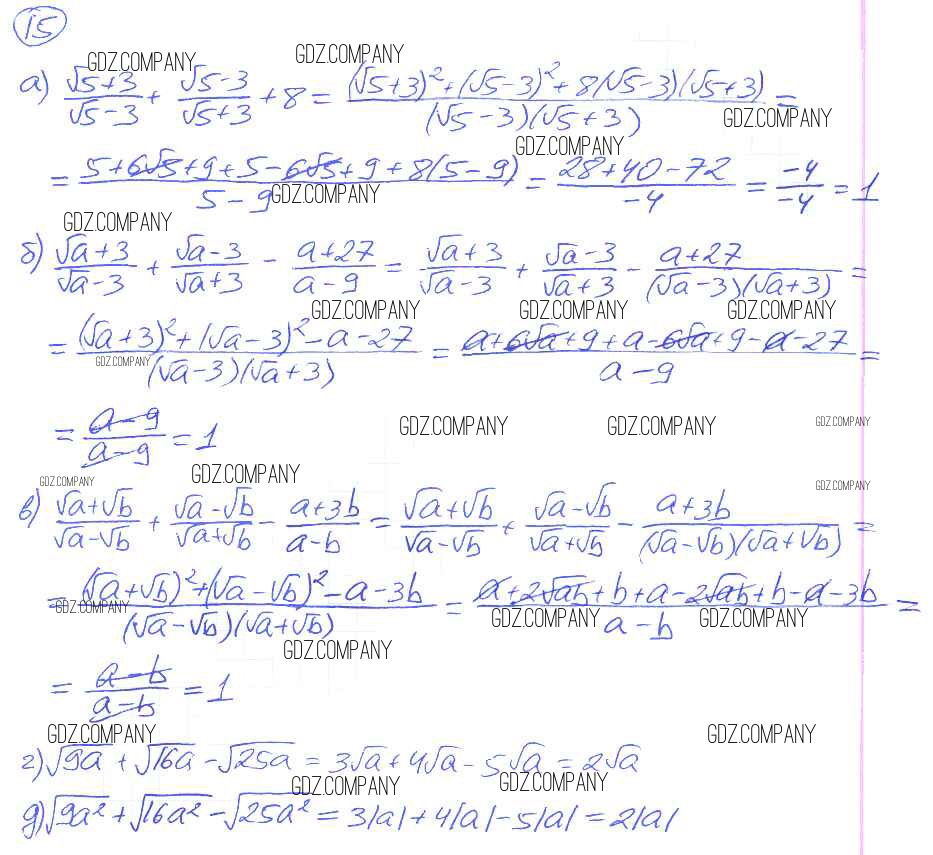 15
GDZ.COMPANY GDZ.COMPANY
а) (√5+3)/(√5-3) + (√5-3)/(√5+3) + 8 = ((√5+3)²+(√5-3)²+8(√5-3)(√5+3))/((√5-3)(√5+3)) =
GDZ.COMPANY
GDZ.COMPANY
= (5+6√5+9+5-6√5+9+8(5-9))/(5-9) = (28+40-72)/(-4) = (-4)/(-4) = 1
GDZ.COMPANY
GDZ.COMPANY
б) (√a+3)/(√a-3) + (√a-3)/(√a+3) - (a+27)/(a-9) = (√a+3)/(√a-3) + (√a-3)/(√a+3) - (a+27)/((√a-3)(√a+3)) =
GDZ.COMPANY GDZ.COMPANY GDZ.COMPANY
= ((√a+3)²+(√a-3)²-a-27)/((√a-3)(√a+3)) = (a+6√a+9+a-6√a+9-a-27)/(a-9) =
GDZ.COMPANY
= (a-9)/(a-9) = 1
GDZ.COMPANY GDZ.COMPANY GDZ.COMPANY
GDZ.COMPANY GDZ.COMPANY GDZ.COMPANY
в) (√a+√b)/(√a-√b) + (√a-√b)/(√a+√b) - (a+3b)/(a-b) = (√a+√b)/(√a-√b) + (√a-√b)/(√a+√b) - (a+3b)/((√a-√b)(√a+√b)) =
= ((√a+√b)²+(√a-√b)²-a-3b)/((√a-√b)(√a+√b)) = (a+2√ab+b+a-2√ab+b-a-3b)/(a-b) =
GDZ.COMPANY GDZ.COMPANY GDZ.COMPANY
GDZ.COMPANY
= (a-b)/(a-b) = 1
GDZ.COMPANY GDZ.COMPANY
г) √9a + √16a - √25a = 3√a + 4√a - 5√a = 2√a
GDZ.COMPANY GDZ.COMPANY
д) √9a² + √16a² - √25a² = 3|a| + 4|a| - 5|a| = 2|a|